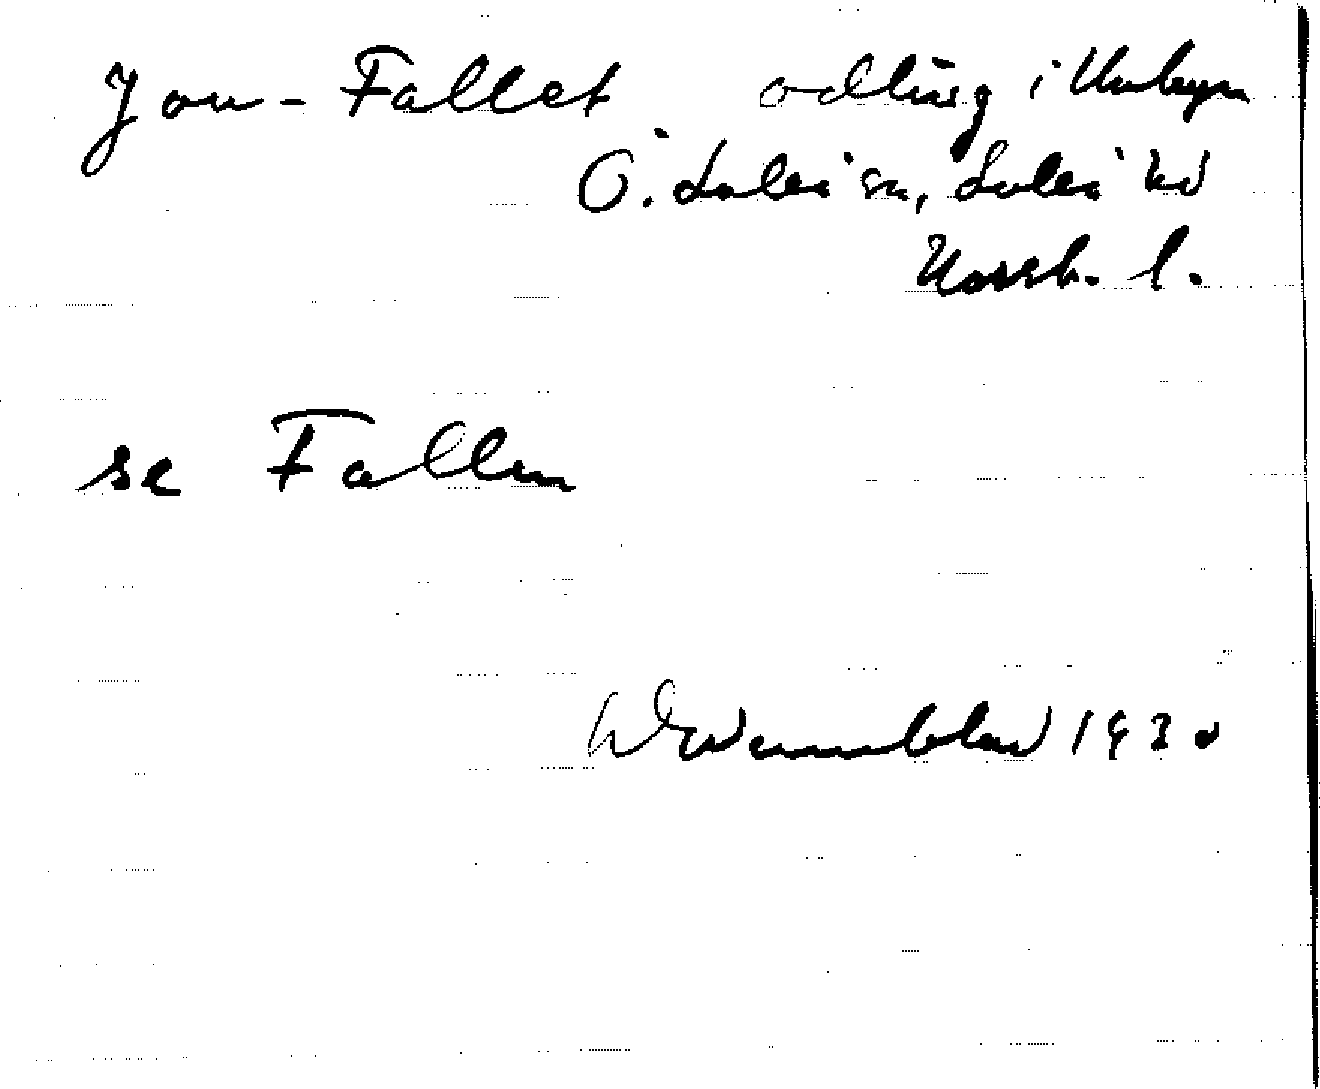 Jon-Fallet odling i Unbyn
Ö. Luleå sn, Luleå tld
Norrb. l.
se Fallen
Wennerblad 1930